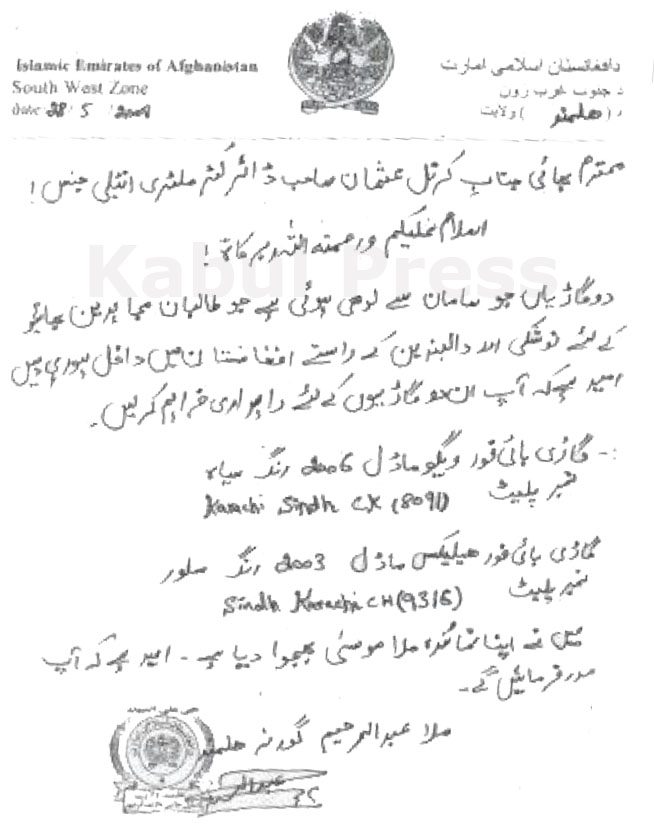 Islamic Emirates of Afghanistan
South West Zone
date: 28 5 2009
دافغانستان اسلامی امارت
د جنوب غرب زون
د (هلمند) ولایت
محترم بھائی جناب کرنل عثمان صاحب ڈائرکٹر ملٹری انٹیلی جنس!
اسلام علیکم ورحمتہ اللہ وبرکاتہ!
Kabul Press
دو گاڑیاں جو سامان سے لوڈ ہوئی ہے جو طالبان مجاہدین بھائیو
کے لئے نوشکی اور دالبندین کے راستے افغانستان میں داخل ہورہی ہیں
امید ہیکہ آپ ان دو گاڑیوں کے لئے راہداری فراہم کریں۔
:- گاڑی ہائی فور ویگو ماڈل 2006 رنگ سیاہ
نمبر پلیٹ Karachi Sindh CK (8091)
گاڑی ہائی فور ھیلیکس ماڈل 2003 رنگ سلور
نمبر پلیٹ Sindh Karachi CH (9316)
میں نے اپنا نمائندہ ملا موسیٰ بھجوا دیا ہے۔ امید ہے کہ آپ
مدد فرمائیں گے۔
ملا عبدالرحیم گورنر هلمند